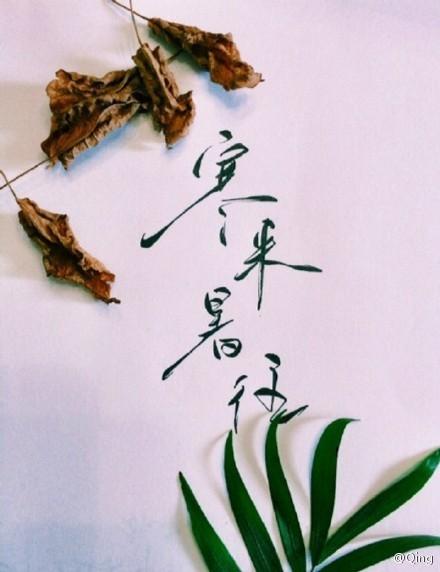 寒来暑往
@Qing